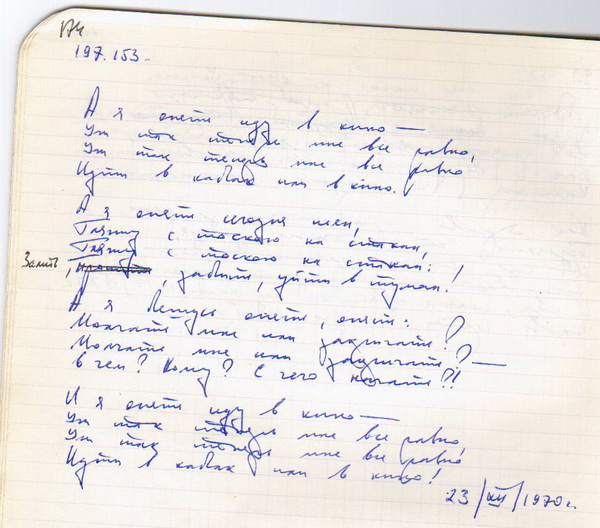 174
197.153-
А я опять иду в кино —
Уж так теперь мне все равно,
Уж так теперь мне все равно
Идти в кабак или в кино.
А я опять сегодня пьян,
Гляжу с тоскою на стакан,
Гляжу с тоскою на стакан: !
Залить, забыть, уйти в туман!
А я вернусь опять, опять:
Молчать мне или закричать?
Молчать мне или закричать? —
О чем? Кому? С чего начать?!
И я опять иду в кино —
Уж так теперь мне все равно,
Уж так теперь мне все равно
Идти в кабак или в кино!
23/XII/1970 г.